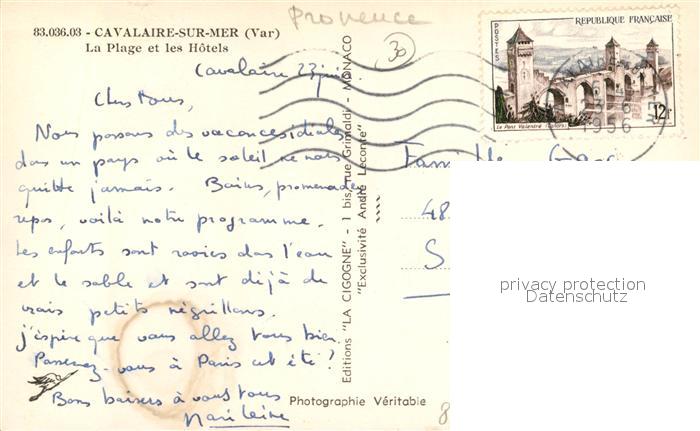 Provence
30
83.036.03 - CAVALAIRE-SUR-MER (Var)
La Plage et les Hôtels
Cavalaire 23 juin
Chers tous,
Nous passons des vacances idéales
dans un pays où le soleil ne nous
quitte jamais. Bains, promenades
repos, voilà notre programme.
Les enfants sont ravies dans l'eau
et le sable et sont déjà de
vrais petits négrillons.
j'espère que vous allez tous bien.
Passerez-vous à Paris cet été ?
Bons baisers à vous tous
Marilaine
Editions "LA CIGOGNE" - 1 bis, rue Grimaldi - MONACO
"Exclusivité André Leconte"
Photographie Véritable
RÉPUBLIQUE FRANÇAISE
POSTES
Le Pont Valentré (Cahors)
12F
1956
Famille
48
S
8
privacy protection
Datenschutz